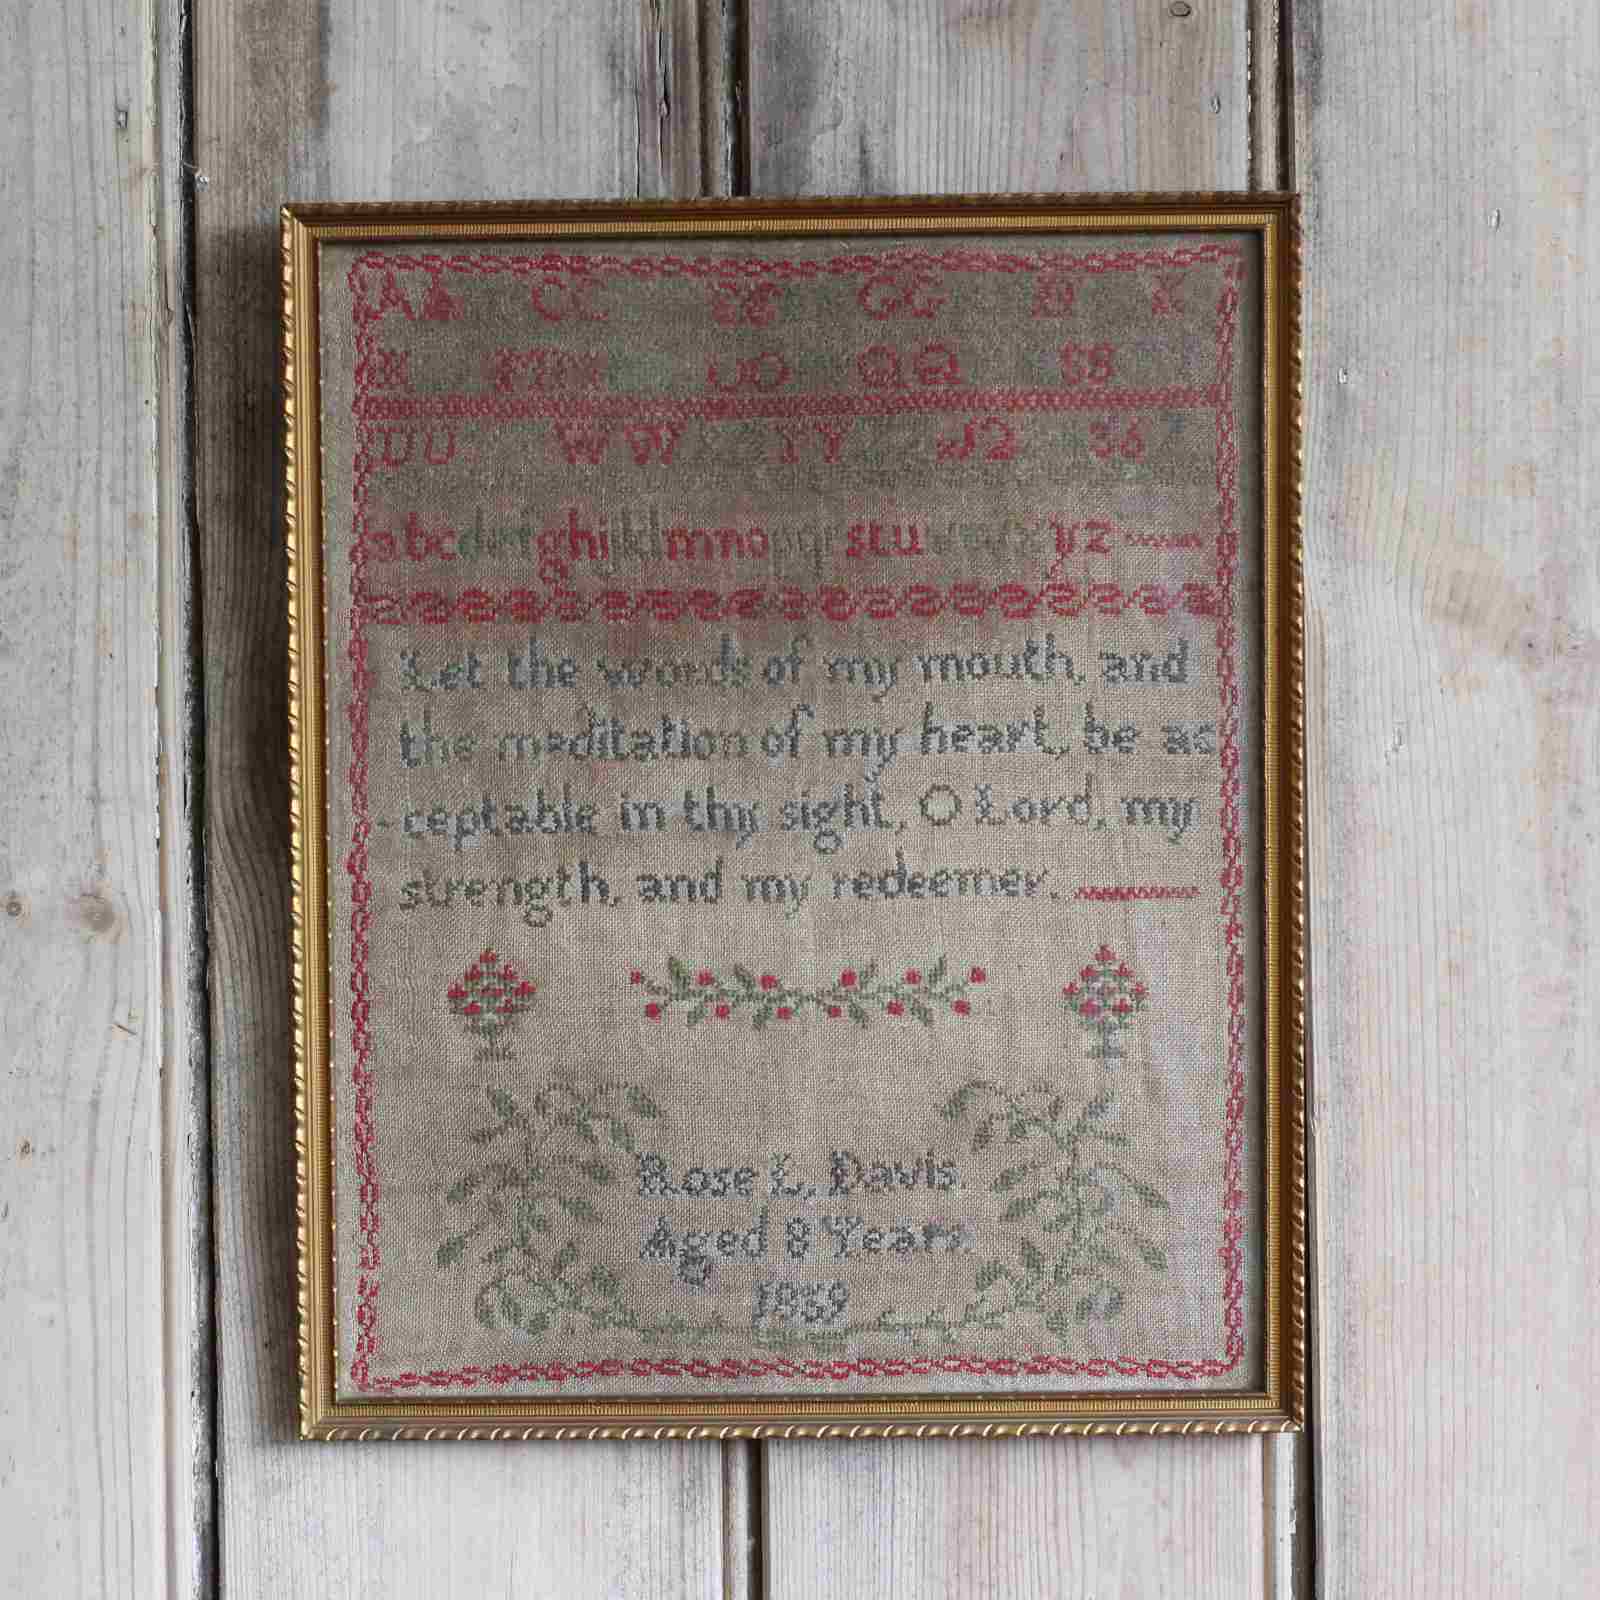 AA CC EE GG K
M O QQ SS
UU WW YY 2 6
abcdefghiklmnopqrstuvwxyz
Let the words of my mouth, and
the meditation of my heart, be ac
-ceptable in thy sight, O Lord, my
strength, and my redeemer.
Rose L. Davis
Aged 8 Years
1869